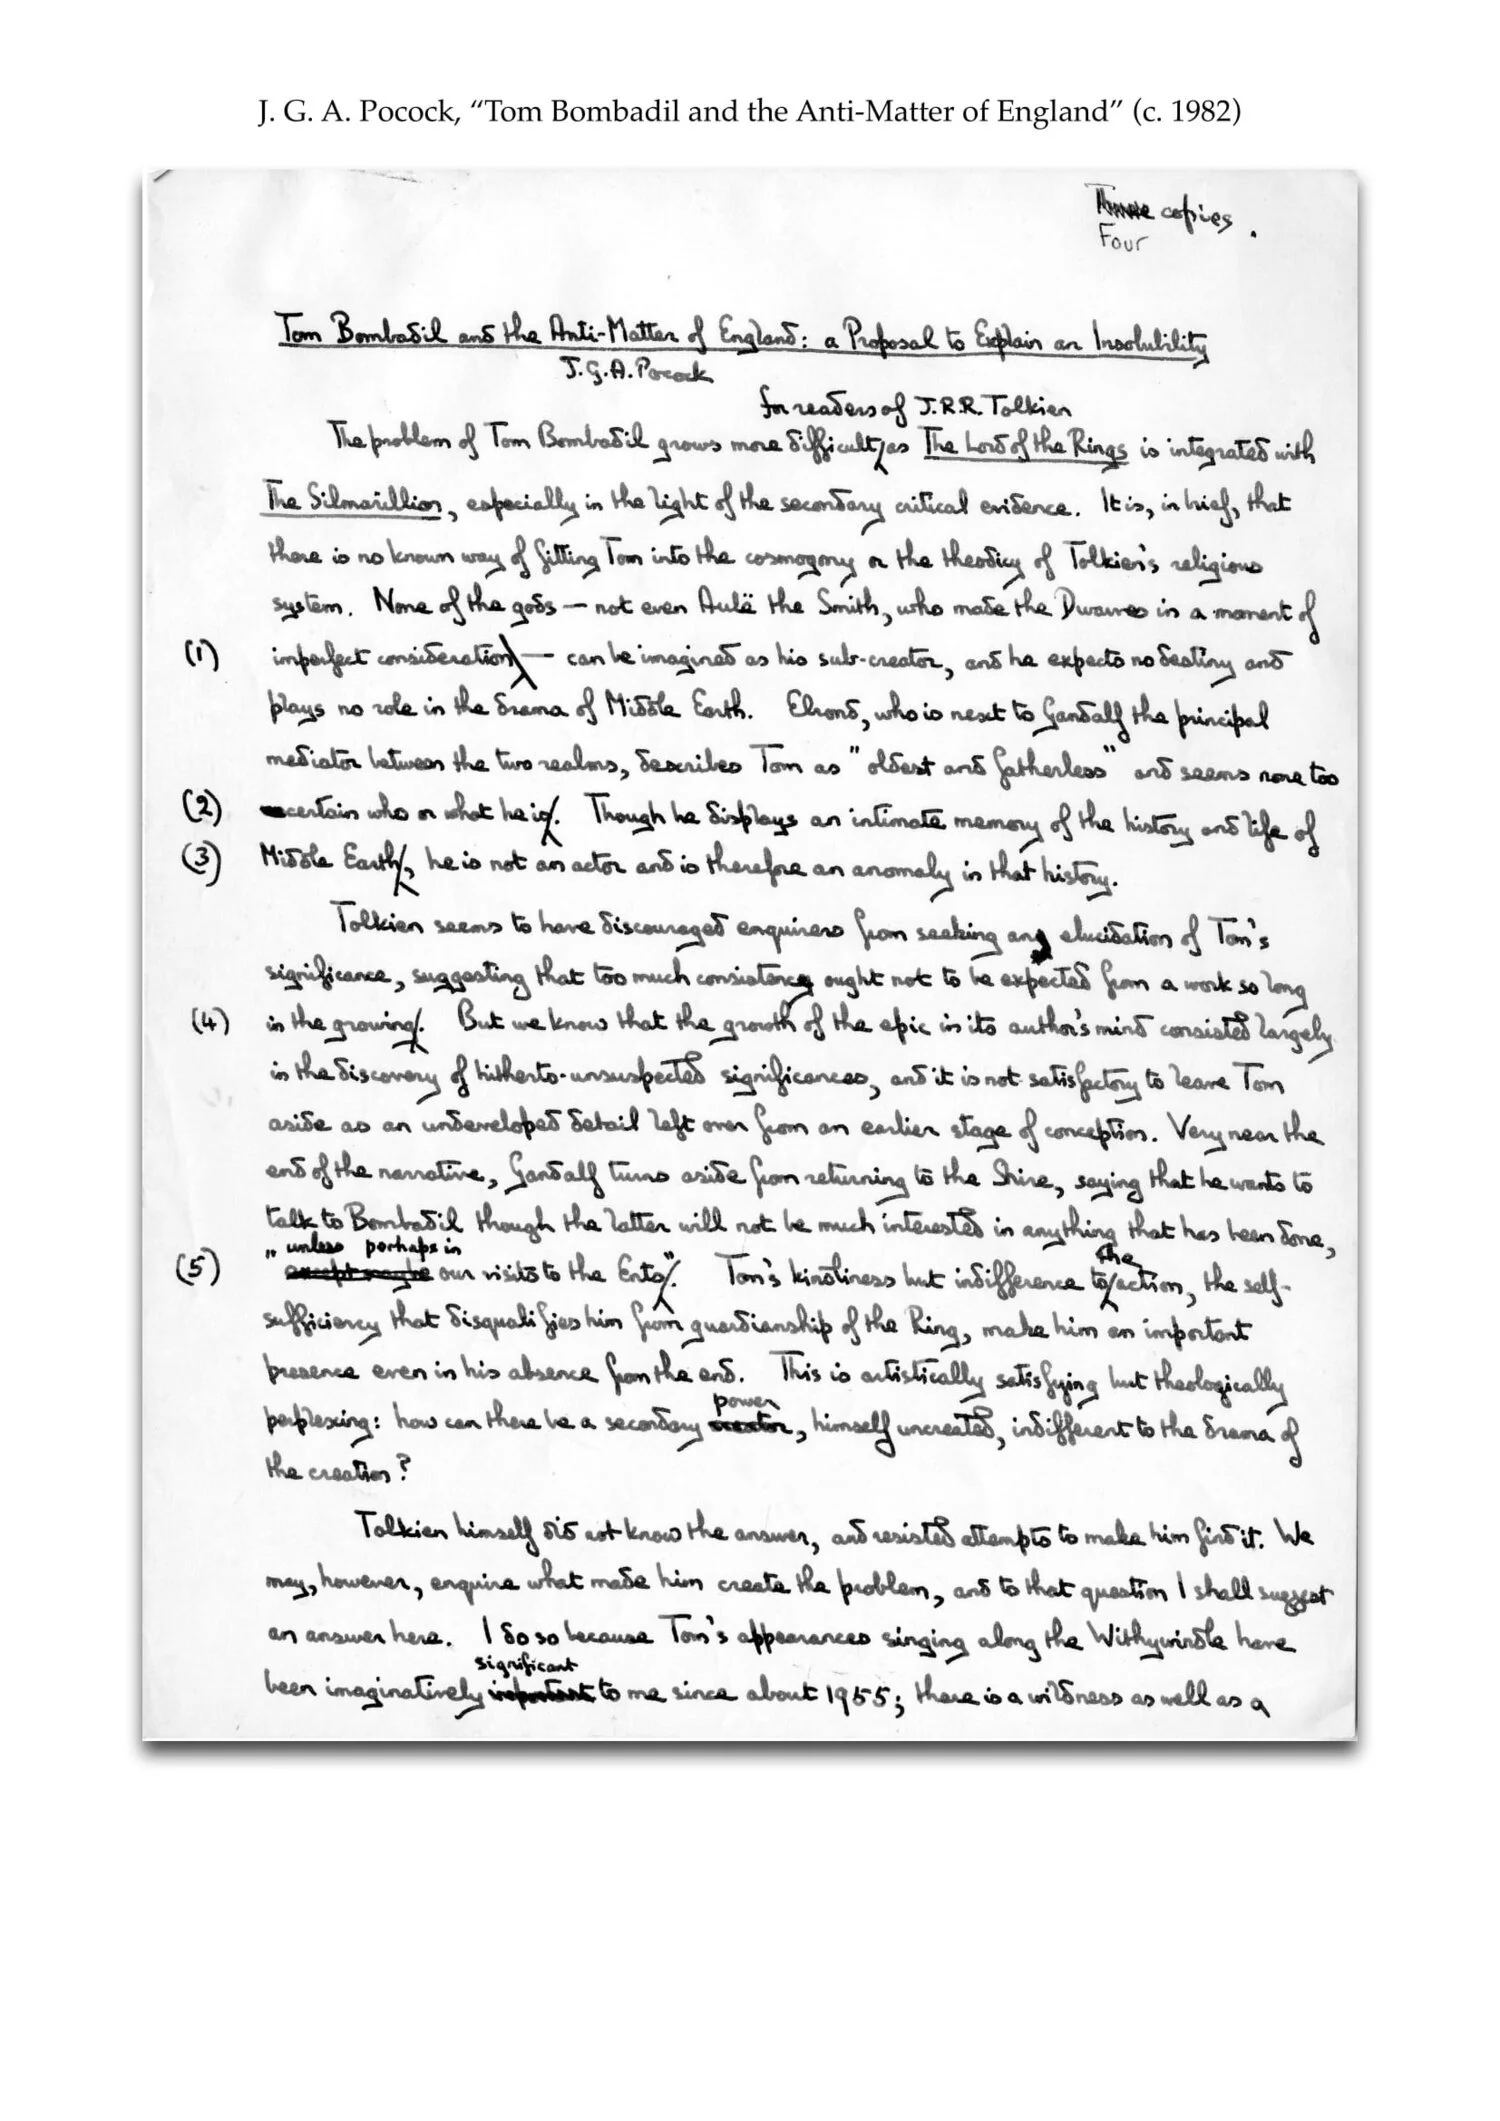 J. G. A. Pocock, “Tom Bombadil and the Anti-Matter of England” (c. 1982)
Three copies.
Four
Tom Bombadil and the Anti-Matter of England: a Proposal to Explain an Insolubility
J.G.A. Pocock
for readers of J.R.R. Tolkien
The problem of Tom Bombadil grows more difficult as The Lord of the Rings is integrated with
The Silmarillion, especially in the light of the secondary critical evidence. It is, in brief, that
there is no known way of fitting Tom into the cosmogony or the theodicy of Tolkien's religious
system. None of the gods — not even Aulë the Smith, who made the Dwarves in a moment of
(1) imperfect consideration — can be imagined as his sub-creator, and he expects no destiny and
plays no role in the drama of Middle Earth. Elrond, who is next to Gandalf the principal
mediator between the two realms, describes Tom as "oldest and fatherless" and seems none too
(2) certain who or what he is. Though he displays an intimate memory of the history and life of
(3) Middle Earth, he is not an actor and is therefore an anomaly in that history.
Tolkien seems to have discouraged enquirers from seeking any elucidation of Tom's
significance, suggesting that too much consistency ought not to be expected from a work so long
(4) in the growing. But we know that the growth of the epic in its author's mind consisted largely
in the discovery of hitherto-unsuspected significances, and it is not satisfactory to leave Tom
aside as an undeveloped detail left over from an earlier stage of conception. Very near the
end of the narrative, Gandalf turns aside from returning to the Shire, saying that he wants to
talk to Bombadil though the latter will not be much interested in anything that has been done,
"unless perhaps in the
(5) except maybe our visits to the Ents". Tom's kindliness but indifference to action, the self-
sufficiency that disqualifies him from guardianship of the Ring, make him an important
presence even in his absence from the end. This is artistically satisfying but theologically
power
perplexing: how can there be a secondary creator, himself uncreated, indifferent to the drama of
the creation?
Tolkien himself did not know the answer, and resisted attempts to make him find it. We
may, however, enquire what made him create the problem, and to that question I shall suggest
an answer here. I do so because Tom's appearances singing along the Withywindle have
significant
been imaginatively important to me since about 1955; there is a wildness as well as a